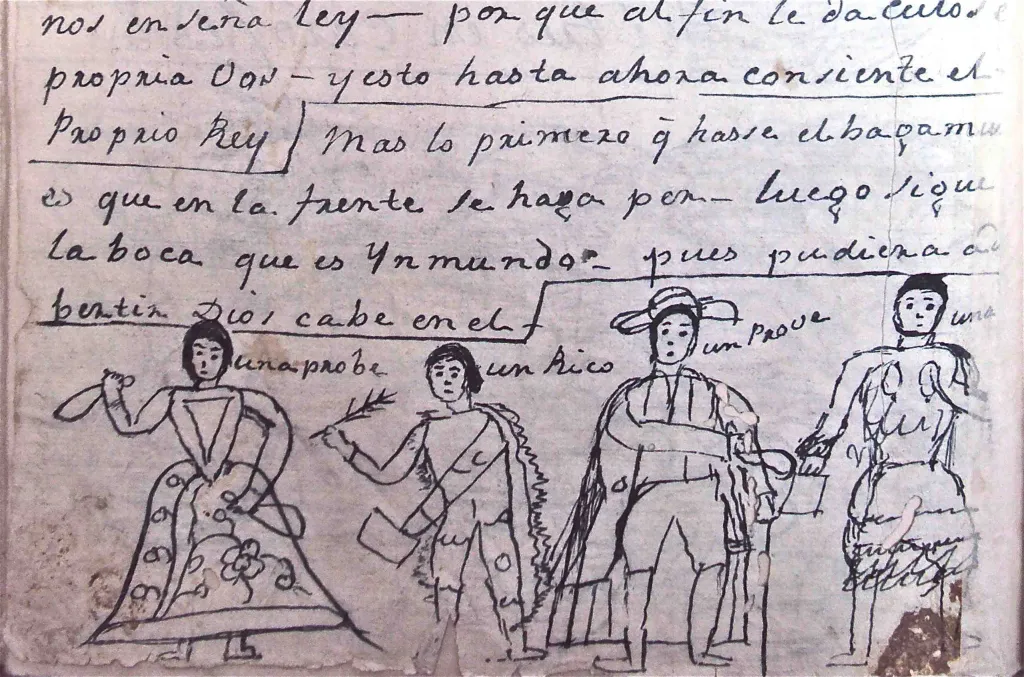 nos enseña ley — por que al fin le da culos
propria Vos — y esto hasta ahora consiente el
Proprio Rey / Mas lo primero q̃ hasse el bagam
es que en la frente se haga per — luego sigue
la boca que es Ynmundo — pues pudiera ad
bertir Dios cabe en el
una probe
un Rico
un Prove
una